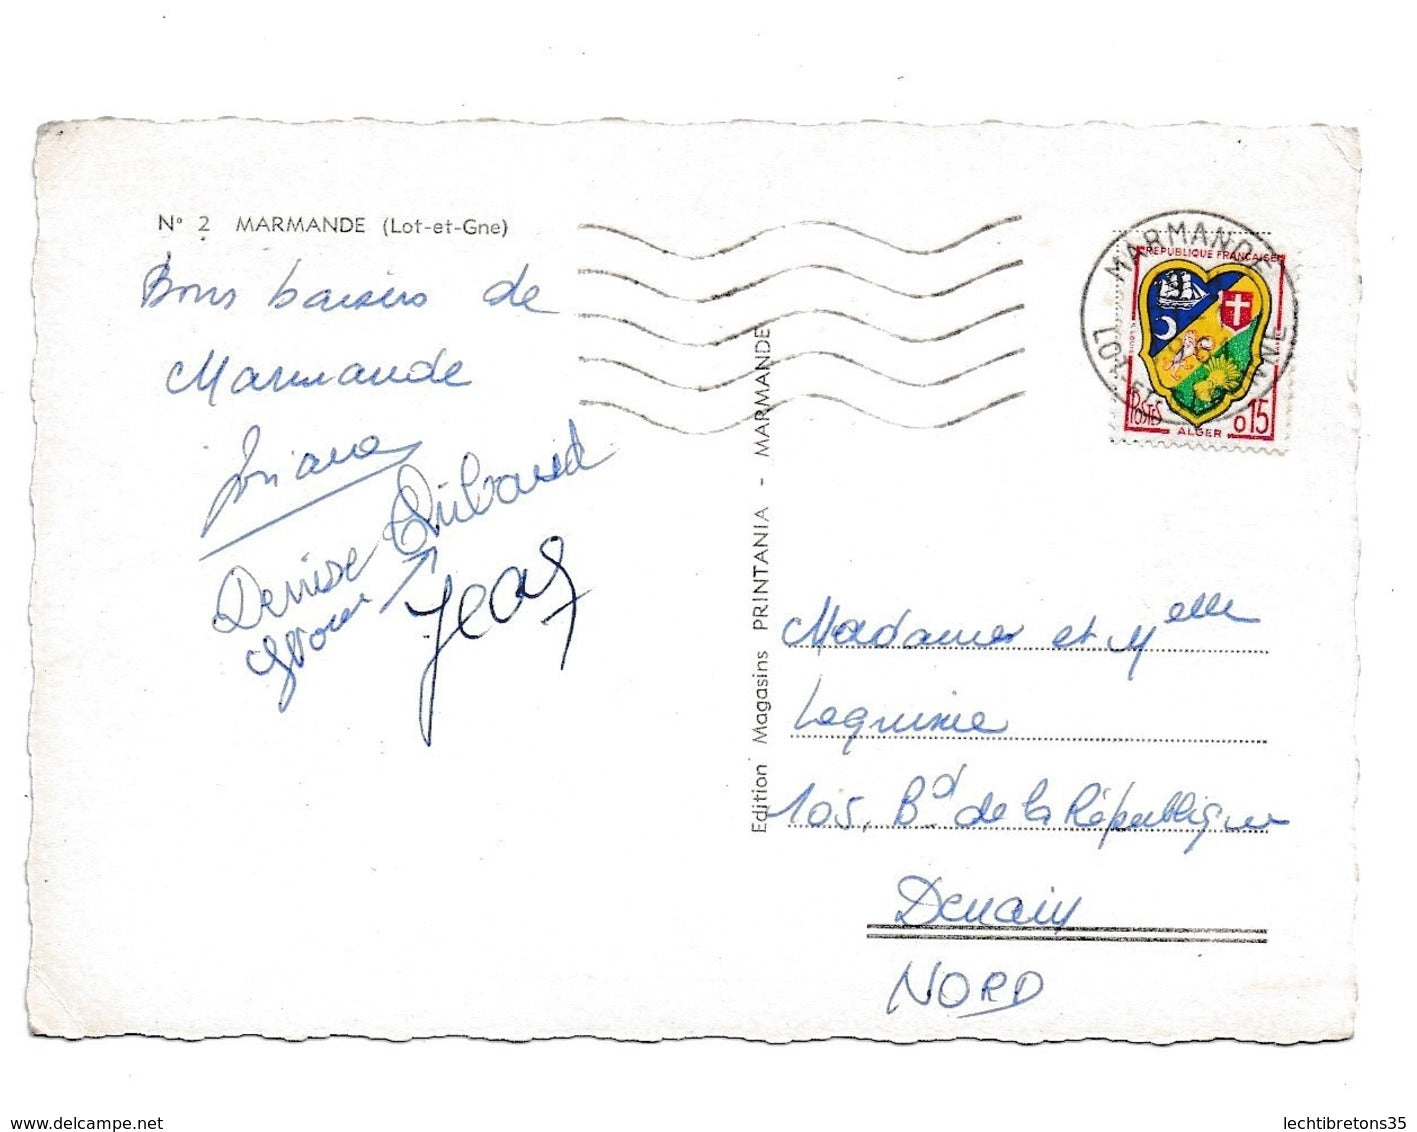 N° 2 MARMANDE (Lot-et-Gne)
Bons baisers de
Marmande
Denise
Jean
Edition Magasins PRINTANIA - MARMANDE
MARMANDE
LOT-ET-GARONNE
REPUBLIQUE FRANÇAISE
POSTES
ALGER
0,15
Madame et Melle
Lequime
105, Bd de la République
Denain
NORD
delcampe.net
lechtibretons35